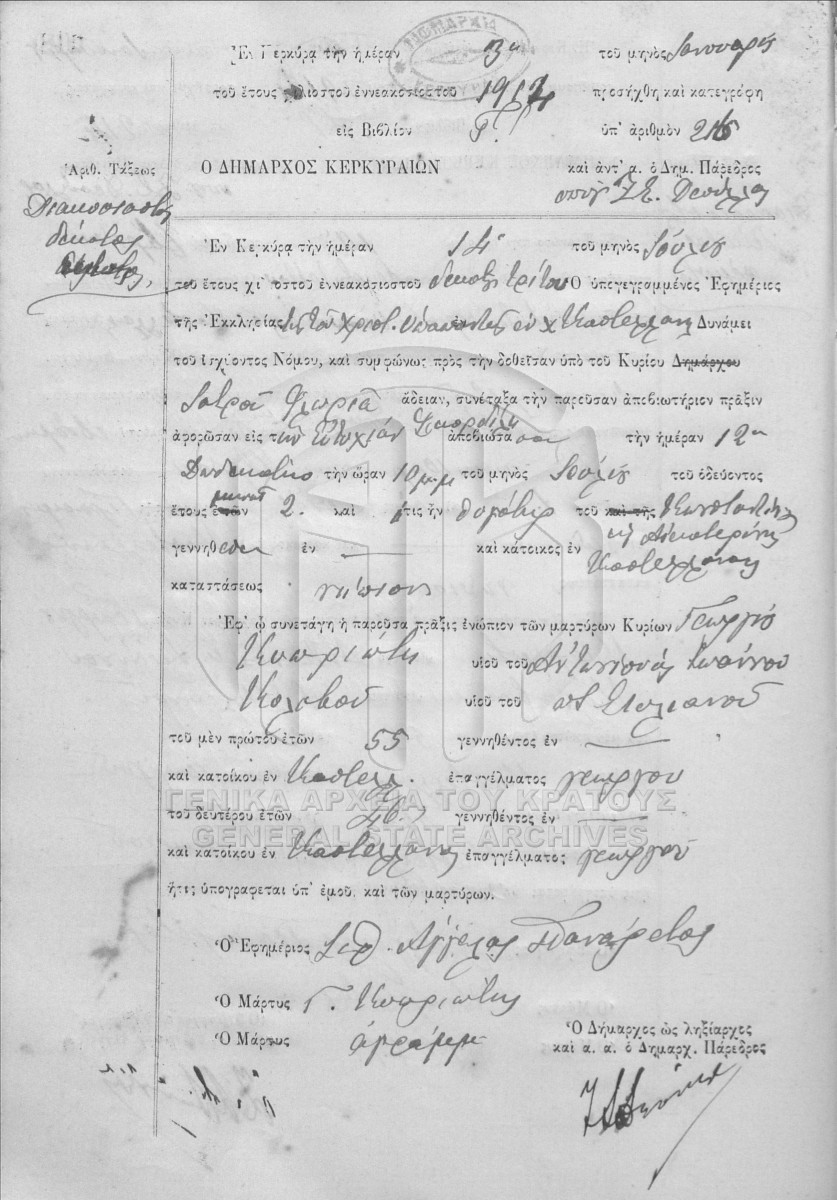 Ἐν Κερκύρᾳ τὴν ἡμέραν 3η τοῦ μηνὸς Ἰανουαρίου
τοῦ ἔτους χιλιοστοῦ ἐννεακοσιοστοῦ 1914 προσήχθη καὶ κατεγράφη
εἰς Βιβλίον Γ! ὑπ' ἀριθμὸν 216
Ἀριθ. Τάξεως
Ο ΔΗΜΑΡΧΟΣ ΚΕΡΚΥΡΑΙΩΝ καὶ ἀντ' α. ὁ Δημ. Πάρεδρος
Διακοσιοστὸς
δέκατος
Ἐν Κερκύρᾳ τὴν ἡμέραν 14η τοῦ μηνὸς Ἰουλίου
τοῦ ἔτους χιλιοστοῦ ἐννεακοσιοστοῦ δεκάτου τρίτου Ὁ ὑπογεγραμμένος Ἐφημέριος
τῆς Ἐκκλησίας Χριστ. ἐν χ Καστελλάνη Δυνάμει
τοῦ ἰσχύοντος Νόμου, καὶ συμφώνως πρὸς τὴν δοθεῖσαν ὑπὸ τοῦ Κυρίου Δημάρχου
Ἰατροῦ Φλωριᾶ ἄδειαν, συνέταξα τὴν παροῦσαν ἀποβιωτήριον πρᾶξιν
ἀφορῶσαν εἰς τὴν Εὐτυχίαν ἀποβιώσασαν τὴν ἡμέραν 12η
Δωδεκάτην τὴν ὥραν 10 μ.μ. τοῦ μηνὸς Ἰουλίου τοῦ ὁδεύοντος
ἔτους ἐτῶν μηνῶν 2. καὶ ἥτις ἦν θυγάτηρ τοῦ καὶ τῆς Κωνσταντίνου
κ Αἰκατερίνης
γεννηθεῖσα ἐν — καὶ κάτοικος ἐν Καστελλάνης
καταστάσεως νήπιον
Ἐφ' ᾧ συνετάγη ἡ παροῦσα πρᾶξις ἐνώπιον τῶν μαρτύρων Κυρίων Γεωργίου
Κυπριώτη υἱοῦ τοῦ Ἀντωνίου κ Ἰωάννου
Κολοβοῦ υἱοῦ τοῦ Στυλιανοῦ
τοῦ μὲν πρώτου ἐτῶν 55 γεννηθέντος ἐν —
καὶ κατοίκου ἐν Καστελλ. ἐπαγγέλματος γεωργοῦ
ΓΕΝΙΚΑ ΑΡΧΕΙΑ ΤΟΥ ΚΡΑΤΟΥΣ
τοῦ δευτέρου ἐτῶν γεννηθέντος ἐν —
GENERAL STATE ARCHIVES
καὶ κατοίκου ἐν Καστελλάνης ἐπαγγέλματος γεωργοῦ
ἥτις ὑπογράφεται ὑπ' ἐμοῦ καὶ τῶν μαρτύρων.
Ὁ Ἐφημέριος Ἄγγελος Πανάρετος
Ὁ Μάρτυς Γ. Κυπριώτης
Ὁ Μάρτυς ἀγράμμ
Ὁ Δήμαρχος ὡς ληξίαρχος
καὶ α. α. ὁ Δημαρχ. Πάρεδρος